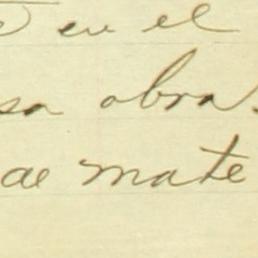 en el
sa obra.
ae mate